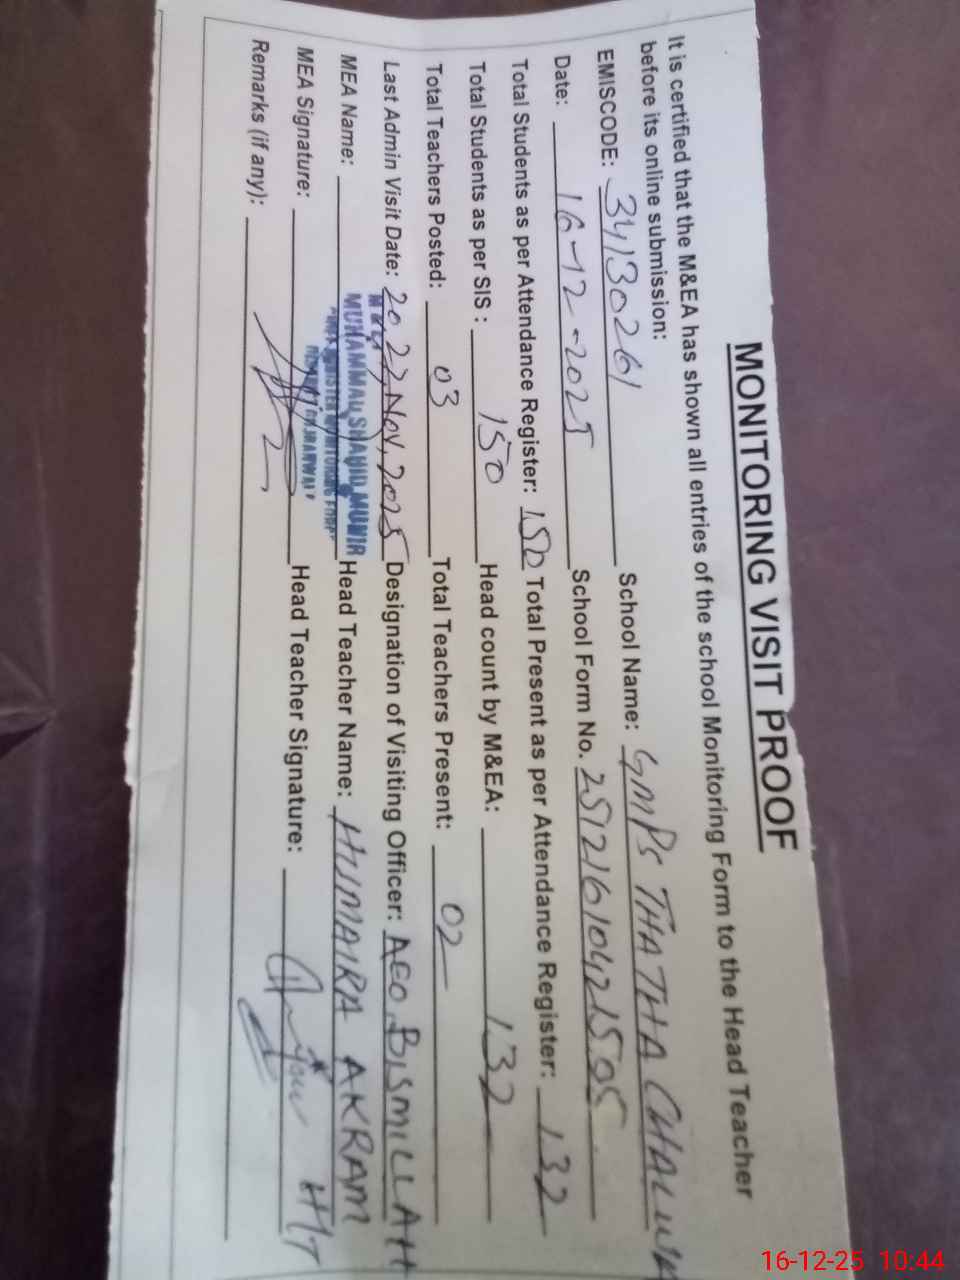 MONITORING VISIT PROOF
It is certified that the M&EA has shown all entries of the school Monitoring Form to the Head Teacher
before its online submission:
EMISCODE: 34130261 School Name: GMPS THATHA CHALWA
Date: 16-12-2025 School Form No. 25121610421505
Total Students as per Attendance Register: 150 Total Present as per Attendance Register: 132
Total Students as per SIS: 150 Head count by M&EA: 132
Total Teachers Posted: 03 Total Teachers Present: 02
Last Admin Visit Date: Nov, 2025 Designation of Visiting Officer: AEO BISMILLAH
MEA Name: MUHAMMAD SHAHID MUNIR Head Teacher Name: HUMAIRA AKRAM
MEA Signature: Head Teacher Signature: HT
Remarks (if any):
16-12-25 10:44